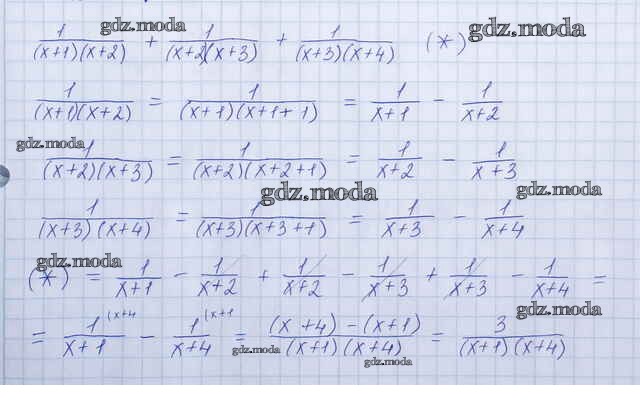 gdz.moda gdz.moda
1/((x+1)(x+2)) + 1/((x+2)(x+3)) + 1/((x+3)(x+4)) (*)
1/((x+1)(x+2)) = 1/((x+1)(x+1+1)) = 1/(x+1) - 1/(x+2)
gdz.moda
1/((x+2)(x+3)) = 1/((x+2)(x+2+1)) = 1/(x+2) - 1/(x+3)
gdz.moda gdz.moda
1/((x+3)(x+4)) = 1/((x+3)(x+3+1)) = 1/(x+3) - 1/(x+4)
gdz.moda
(*) = 1/(x+1) - 1/(x+2) + 1/(x+2) - 1/(x+3) + 1/(x+3) - 1/(x+4) =
gdz.moda
= 1/(x+1) (x+4 - 1/(x+4) (x+1 = ((x+4)-(x+1))/((x+1)(x+4)) = 3/((x+1)(x+4))
gdz.moda
gdz.moda